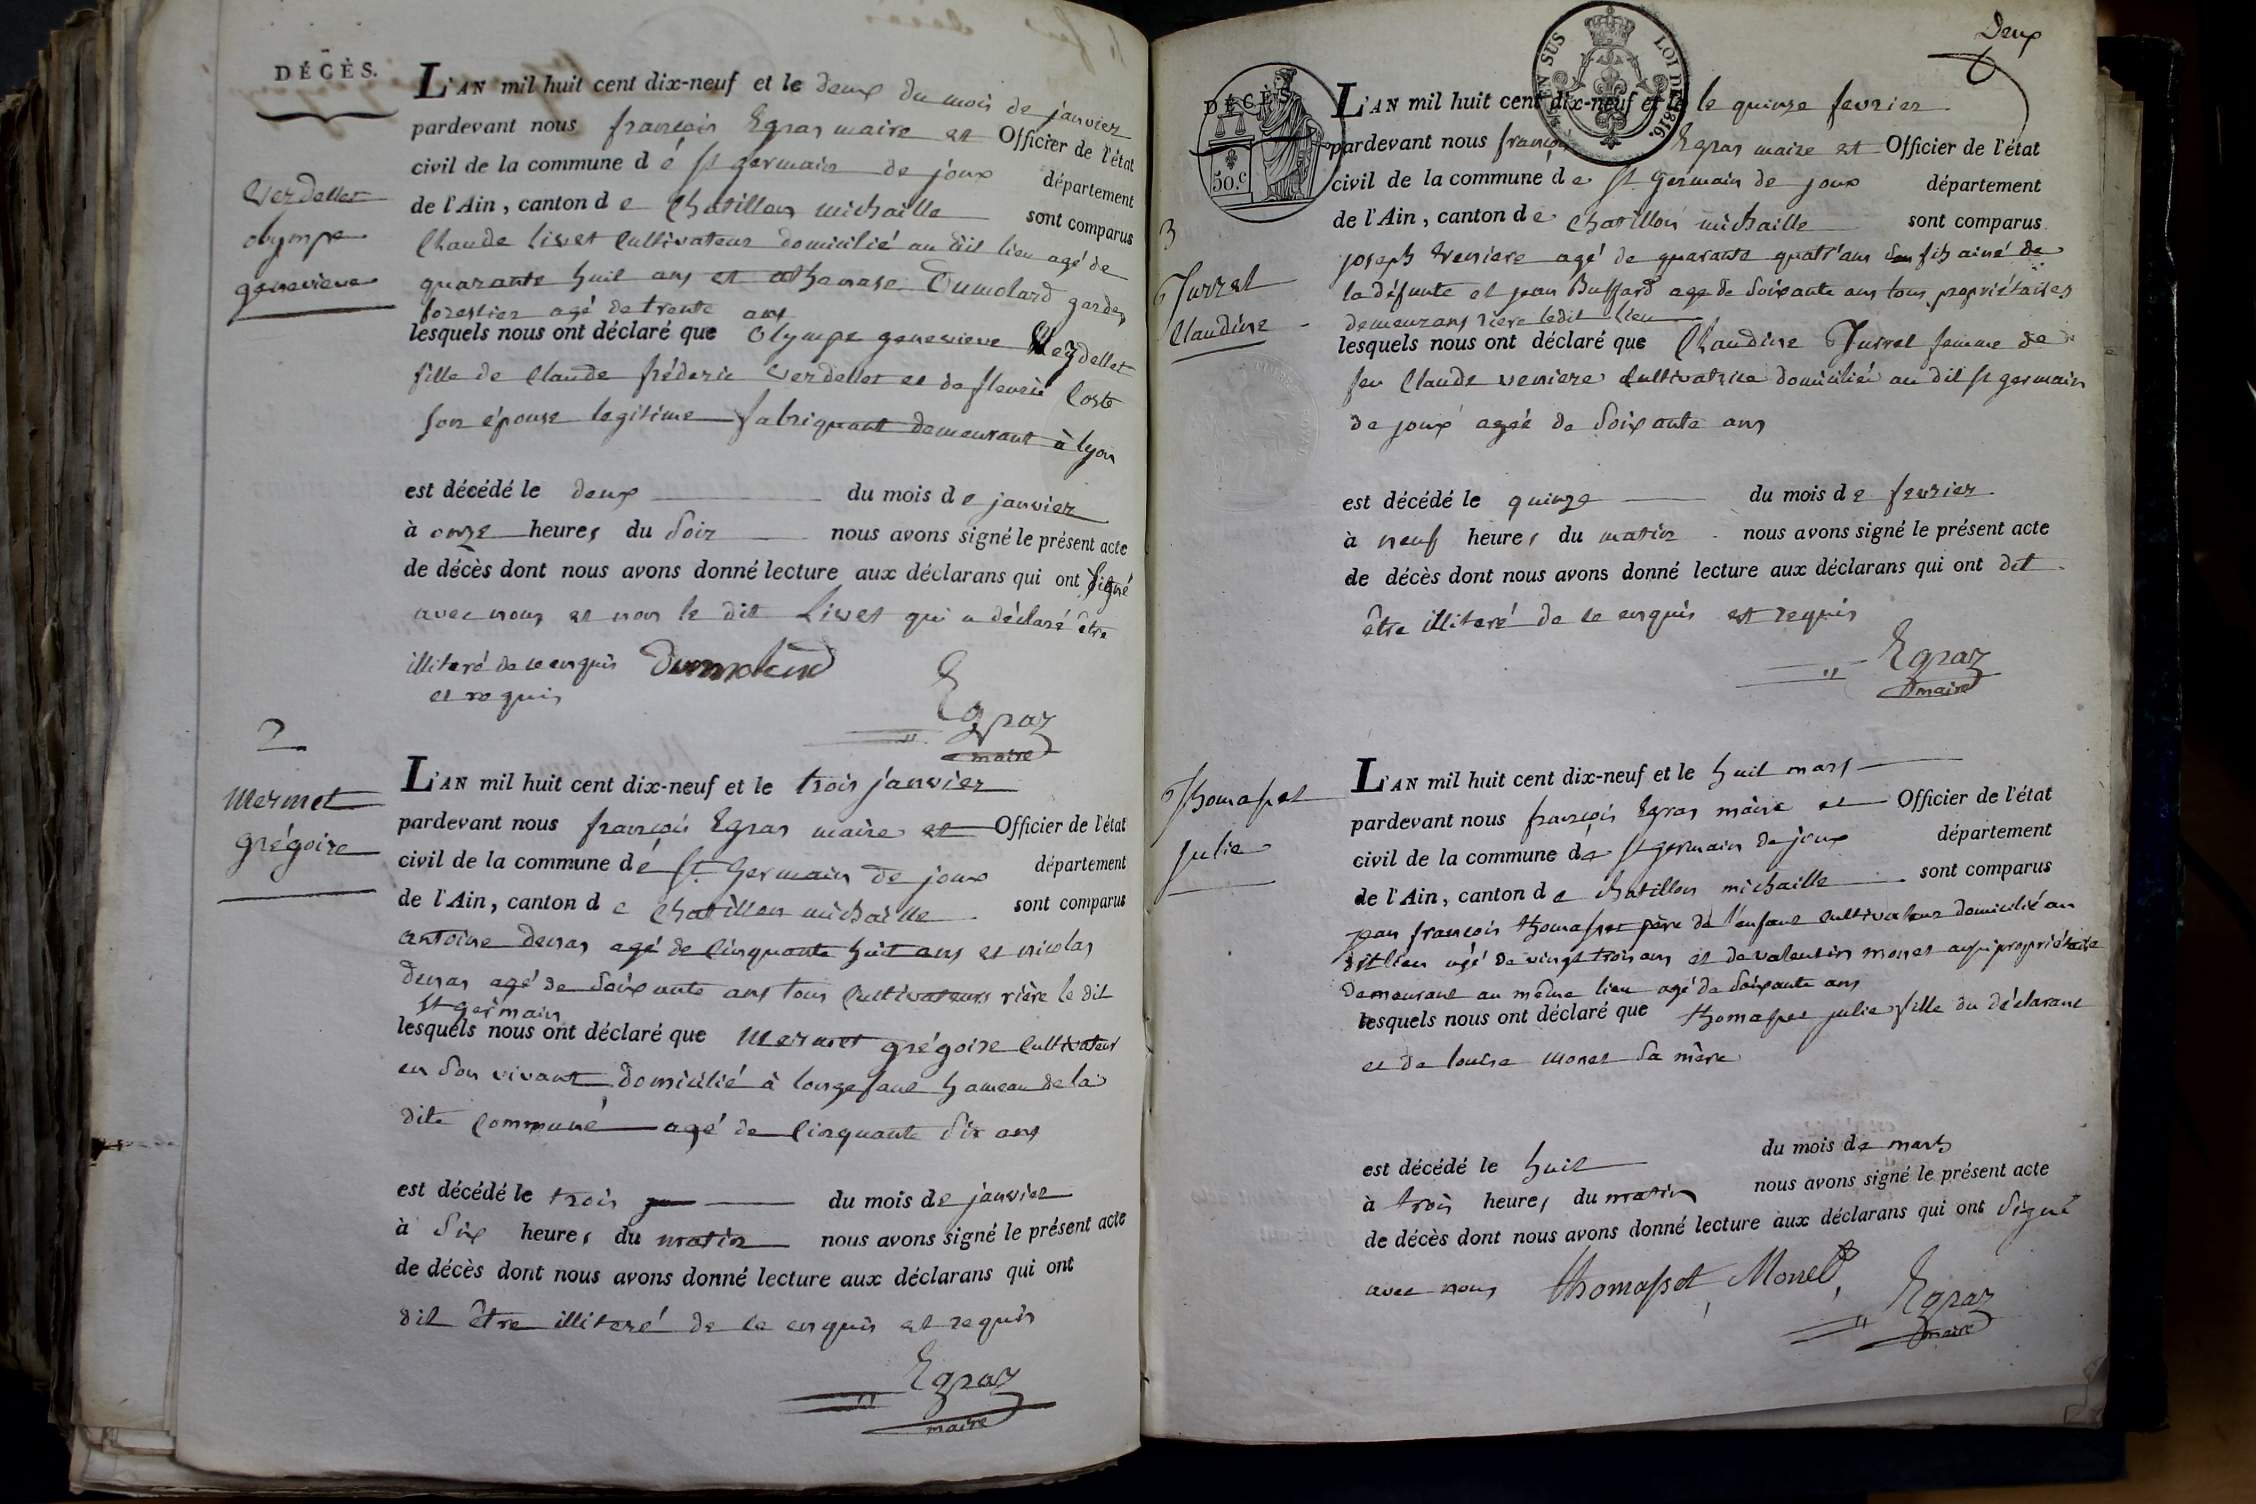 DÉCÈS.
L'AN mil huit cent dix-neuf et le deux du mois de janvier
pardevant nous françois Egras maire et Officier de l'état
civil de la commune de St germain de joux département
de l'Ain, canton de Chatillon michaille sont comparus
Claude Livet Cultivateur domicilié au dit lieu agé de
quarante huit ans et athenase Dumolard garde
forestier agé de trente ans
Verdellet
olympe
genevieve
lesquels nous ont déclaré que Olympe genevieve Verdellet
fille de Claude fréderic Verdellet et de fleurie Coste
son épouse legitime fabriquant demeurant à lyon
est décédé le deux du mois de janvier
à onze heures du soir nous avons signé le présent acte
de décès dont nous avons donné lecture aux déclarans qui ont signé
avec nous et non le dit Livet qui a déclaré être
illiteré de ce enquis Dumolard
et requis
Egraz
maire
2
Mermet
grégoire
L'AN mil huit cent dix-neuf et le trois janvier
pardevant nous françois Egras maire et Officier de l'état
civil de la commune de St Germain de joux département
de l'Ain, canton de Chatillon michaille sont comparus
antoine agé de Cinquante huit ans et nicolas
agé de soixante ans tous Cultivateurs rière le dit
St germain
lesquels nous ont déclaré que Mermet grégoire Cultivateur
en son vivant domicilié à longefant hameau de la
dite Commune agé de Cinquante six ans
est décédé le trois du mois de janvier
à six heures du matin nous avons signé le présent acte
de décès dont nous avons donné lecture aux déclarans qui ont
dit être illiteré de ce enquis et requis
Egraz
maire
Deux
EN SUS LOI DE 1816.
50.c
DÉCÈS
L'AN mil huit cent dix-neuf et le le quinze fevrier
pardevant nous françois Egras maire et Officier de l'état
civil de la commune de St Germain de joux département
de l'Ain, canton de Chatillon michaille sont comparus
3
Jurret
Claudine
joseph Veniere agé de quarante quatr'ans fils ainé de
la défunte et jean Buffard agé de soixante ans tous propriétaires
demeurans rière ledit lieu
lesquels nous ont déclaré que Claudine Jurret femme de
feu Claude veniere Cultivatrice domiciliée au dit St germain
de joux agée de soixante ans
est décédé le quinze du mois de fevrier
à neuf heures du matin nous avons signé le présent acte
de décès dont nous avons donné lecture aux déclarans qui ont dit
être illiteré de ce enquis et requis
Egraz
maire
Thomasset
Julie
L'AN mil huit cent dix-neuf et le huit mars
pardevant nous françois Egras maire et Officier de l'état
civil de la commune de St germain de joux département
de l'Ain, canton de Chatillon michaille sont comparus
jean françois thomasset père de l'enfant Cultivateur domicilié au
dit lieu agé de vingt trois ans et de valentin monet aussi propriétaire
demeurant au même lieu agé de soixante ans
lesquels nous ont déclaré que thomasset julie fille du déclarant
et de louise monet sa mère
est décédé le huit du mois de mars
à trois heures du matin nous avons signé le présent acte
de décès dont nous avons donné lecture aux déclarans qui ont signé
avec nous thomasset, Monet,
Egraz
maire